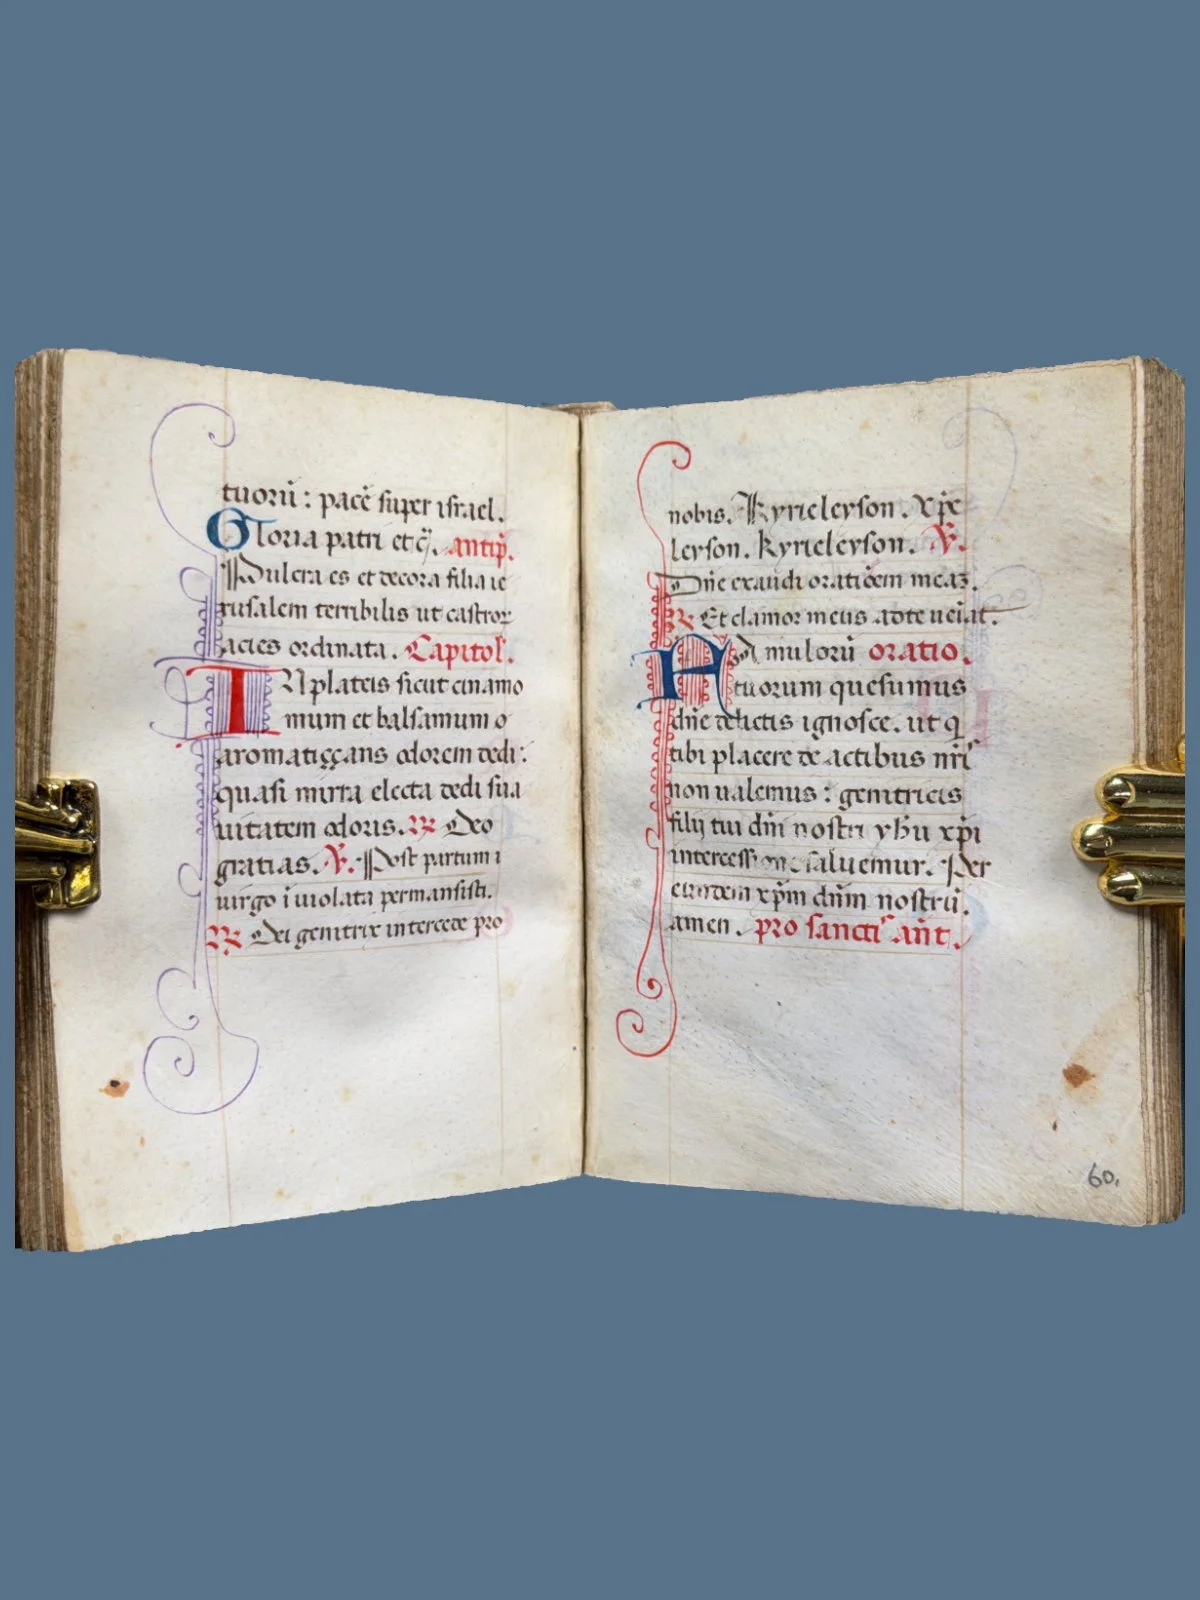 tuorū : pacē super israel.
Gloria patri et c̄. antip̄.
Pulcra es et decora filia ie
rusalem terribilis ut castroꝝ
acies ordinata. Capitol'.
IN plateis sicut cinamo
mum et balsamum o
aromatiççans odorem dedi:
quasi mirra electa dedi sua
uitatem odoris. ℟ Deo
gratias. ℣. Post partum i
uirgo īuiolata permansisti.
℟ Dei genitrix intercede pro
nobis. Kyrieleyson. Xp̄e
leyson. Kyrieleyson. ℣.
Dn̄e exaudi oratiōem meaꝫ.
℟ Et clamor meus adte ueīat.
FAmulorū oratio.
tuorum quesumus
dn̄e delictis ignosce. ut q
tibi placere de actibus nr̄is
non ualemus : genitricis
filij tui dn̄i nostri yh̄u xp̄i
intercessione saluemur. Per
eundem xp̄m dn̄m nostrū.
amen. pro sanctis an̄t.
60.